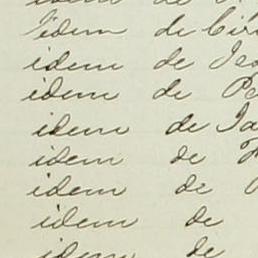 idem de
idem de
idem de
idem de
idem de
idem de
idem de
idem de
idem de